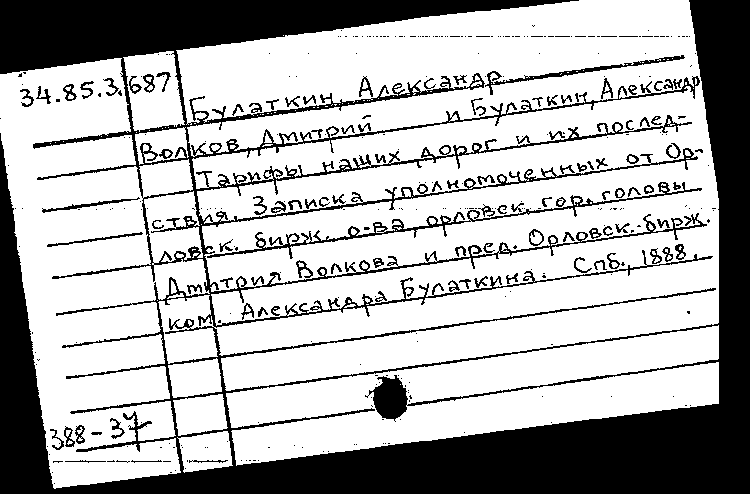 34.85.3.687
Булаткин, Александр
Волков, Дмитрий и Булаткин, Александр
Тарифы наших дорог и их послед-
ствия. Записка уполномоченных от Ор-
ловск. бирж. о-ва, орловск. гор. головы
Дмитрия Волкова и пред. Орловск. бирж.
ком. Александра Булаткина. Спб., 1888.
388-37